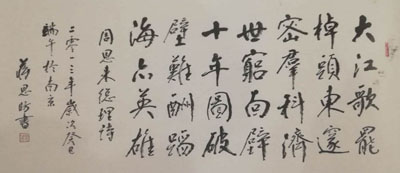 大江歌罷
棹頭東邃
密羣科濟
世窮面壁
十年圖破
壁難酬蹈
海亦英雄
周恩来總理詩
二零一三年歲次癸巳
端午於南京
蔣思昀書